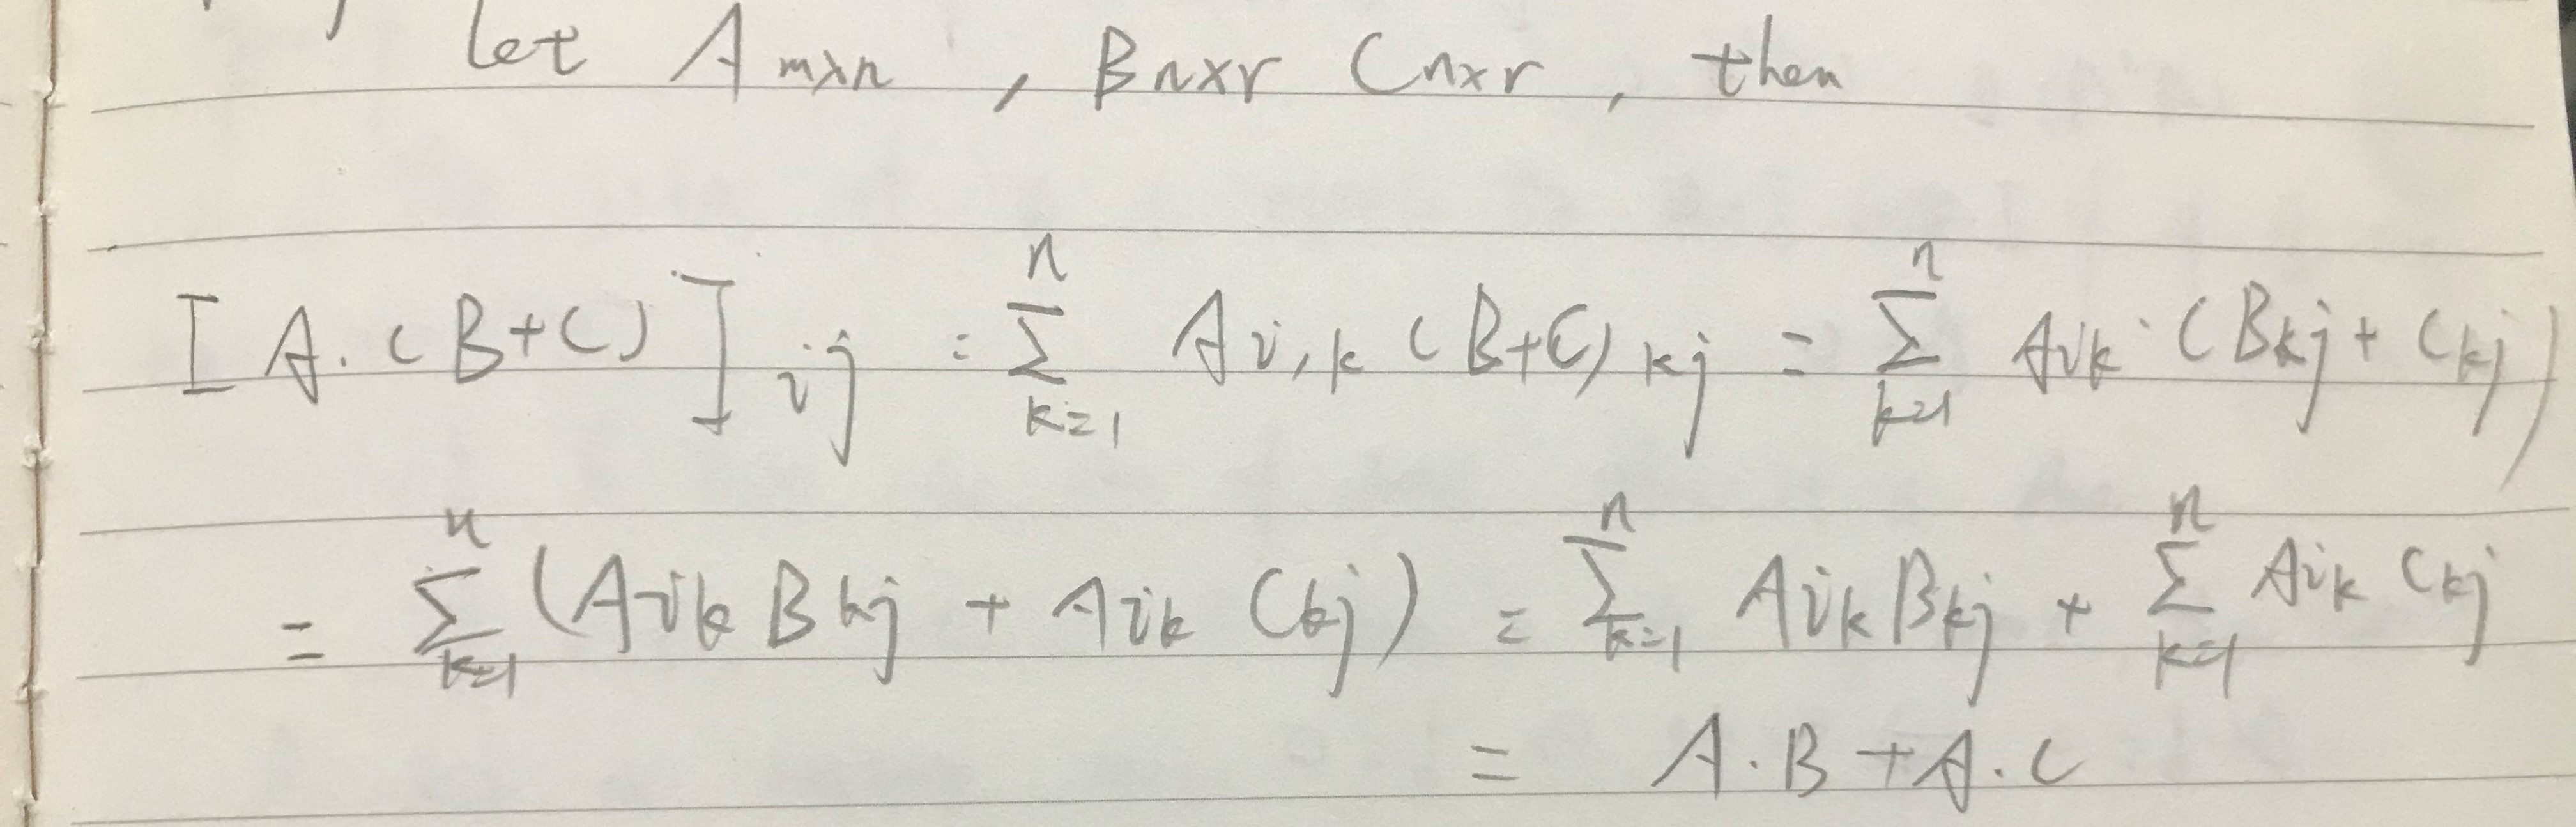 let A m×n , B n×r C n×r , then
[A·(B+C)]ij = ∑_{k=1}^{n} Ai,k (B+C)kj = ∑_{k=1}^{n} Aik·(Bkj + Ckj)
= ∑_{k=1}^{n} (Aik Bkj + Aik Ckj) = ∑_{k=1}^{n} Aik Bkj + ∑_{k=1}^{n} Aik Ckj
= A·B + A·C